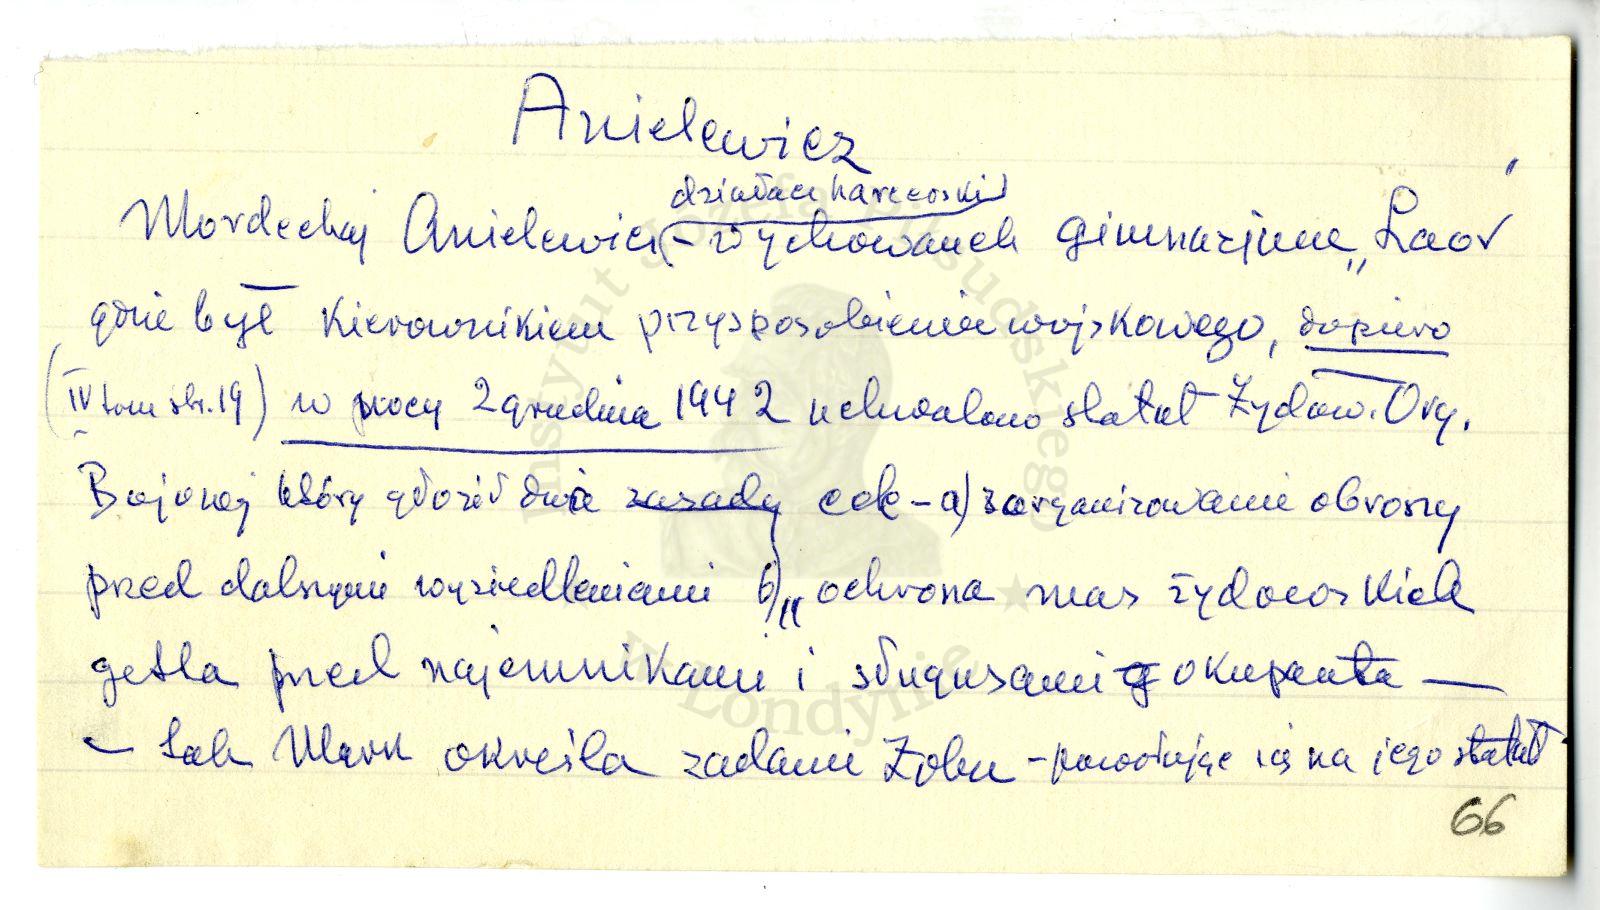 Anielewicz
działacz harcerski
Mordechaj Anielewicz - wychowanek gimnazjum „Laor
gdzie był kierownikiem przysposobienia wojskowego, dopiero
(IV tom str. 19) w nocy 2 grudnia 1942 uchwalono statut Żydow. Org.
Bojowej który głosił dwie zasady cele - a) zorganizowanie obrony
przed dalszymi wysiedleniami b) „ochrona mas żydowskich
getta przed najemnikami i sługusami okupanta —
— tak Mark określa zadania Żobu - powołując się na jego statut
66
Instytut Józefa Piłsudskiego
w Londynie